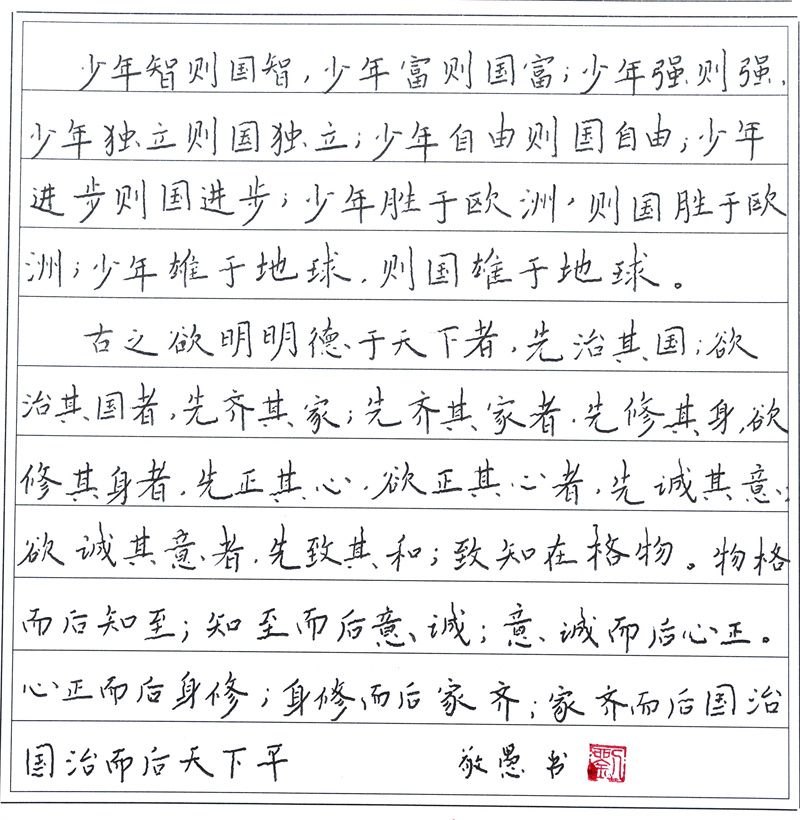 少年智则国智，少年富则国富；少年强则强，
少年独立则国独立；少年自由则国自由；少年
进步则国进步；少年胜于欧洲，则国胜于欧
洲；少年雄于地球，则国雄于地球。
古之欲明明德于天下者，先治其国；欲
治其国者，先齐其家；先齐其家者，先修其身，欲
修其身者，先正其心，欲正其心者，先诚其意；
欲诚其意者，先致其和；致知在格物。物格
而后知至；知至而后意诚；意诚而后心正。
心正而后身修；身修而后家齐；家齐而后国治
国治而后天下平
敬愚书